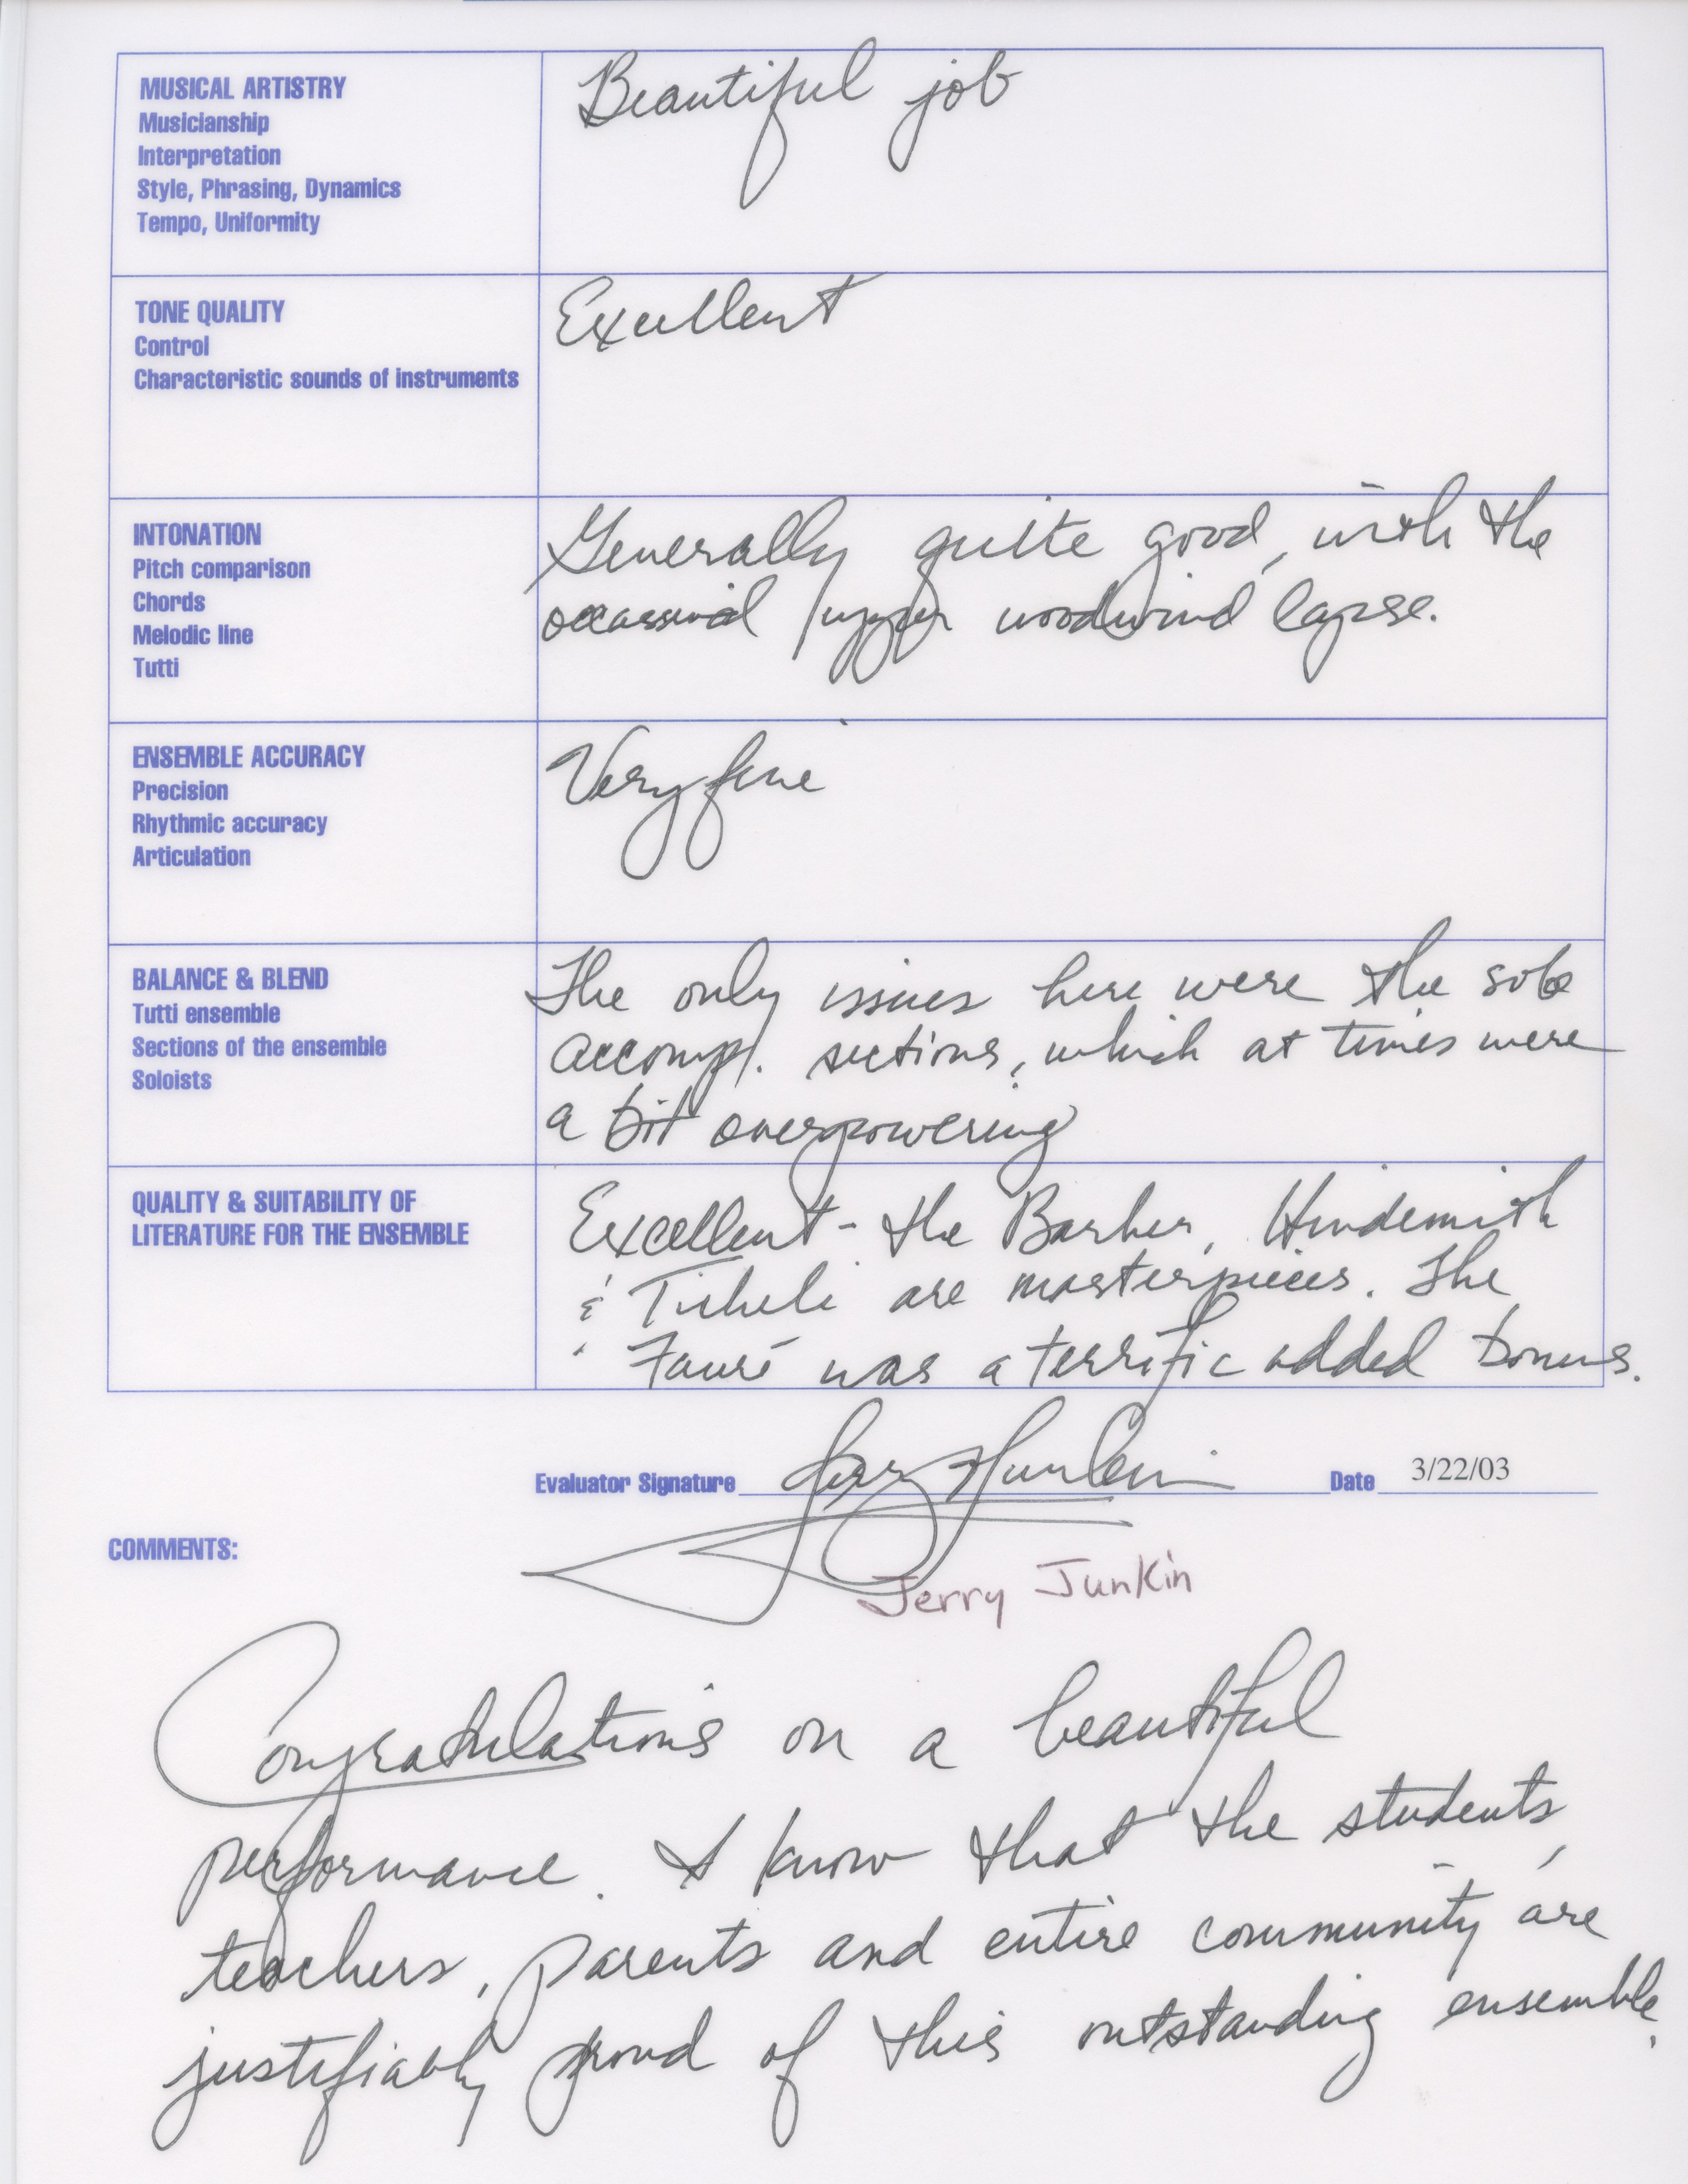 MUSICAL ARTISTRY
Musicianship
Interpretation
Style, Phrasing, Dynamics
Tempo, Uniformity
Beautiful job
TONE QUALITY
Control
Characteristic sounds of instruments
Excellent
INTONATION
Pitch comparison
Chords
Melodic line
Tutti
Generally quite good, with the
occassional upper woodwind lapse.
ENSEMBLE ACCURACY
Precision
Rhythmic accuracy
Articulation
Very fine
BALANCE & BLEND
Tutti ensemble
Sections of the ensemble
Soloists
The only issues here were the solo
accomp. sections, which at times were
a bit overpowering
QUALITY & SUITABILITY OF
LITERATURE FOR THE ENSEMBLE
Excellent - the Barber, Hindemith
& Ticheli are masterpieces. The
Fauré was a terrific added bonus.
Evaluator Signature Jerry Junkin Date 3/22/03
COMMENTS:
Jerry Junkin
Congratulations on a beautiful
performance. I know that the students,
teachers, parents and entire community are
justifiably proud of this outstanding ensemble.